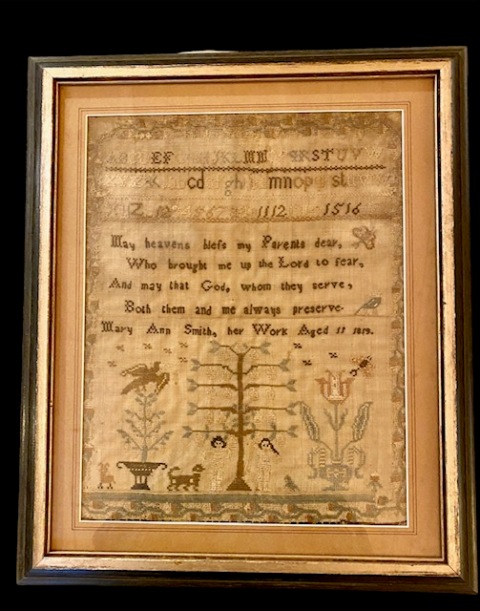 EF MN RSTUV
cd gh mnop st
Z 567 1112 1516
May heavens blefs my Parents dear,
Who brought me up the Lord to fear,
And may that God, whom they serve,
Both them and me always preserve.
Mary Ann Smith, her Work Aged 11 1819.